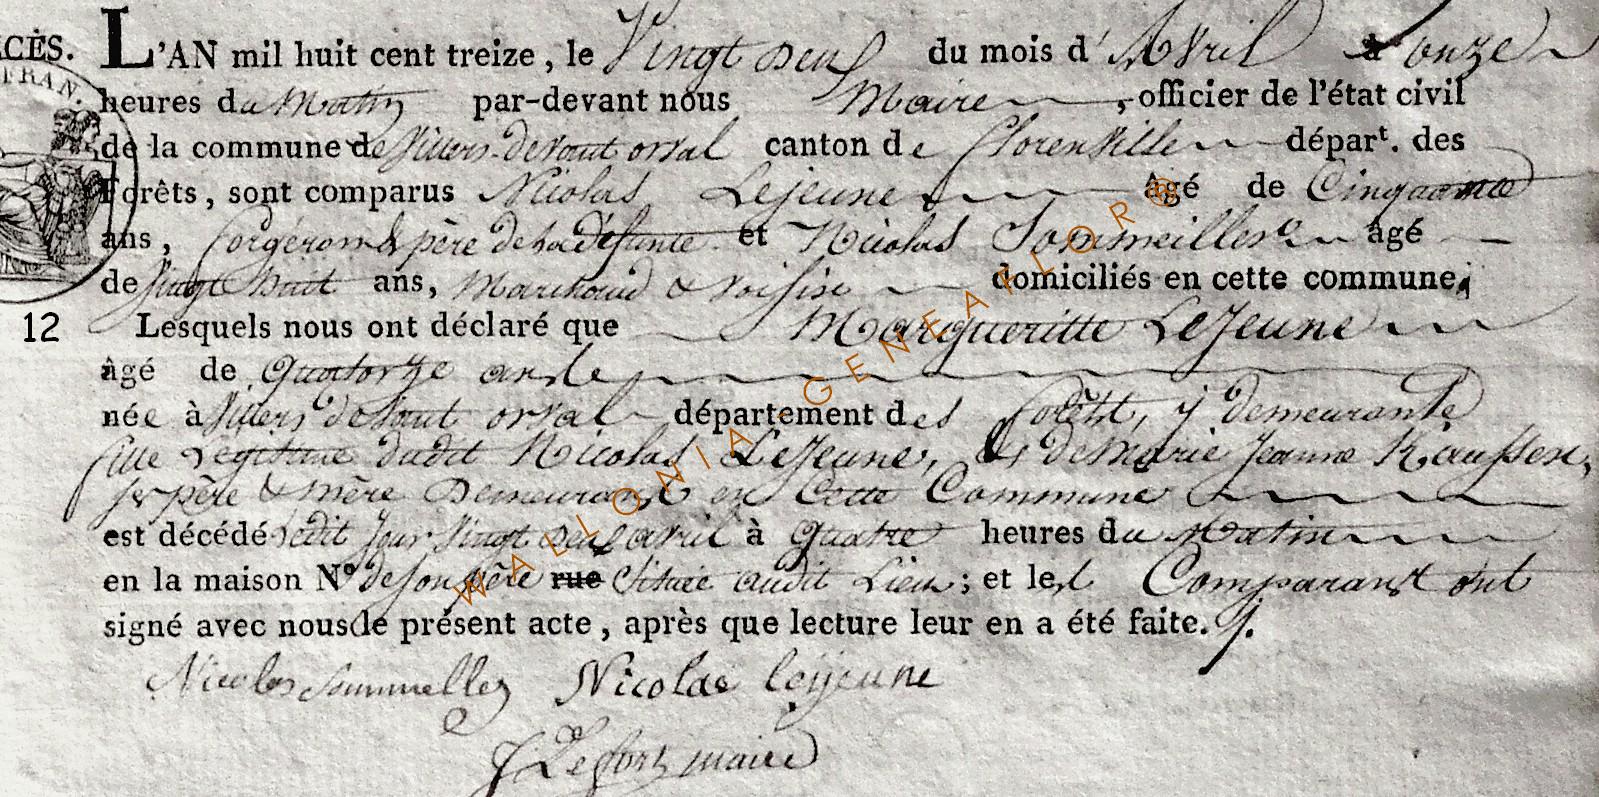 CÈS. L'AN mil huit cent treize, le Vingt deux du mois d'Avril à onze
FRAN.
heures du Matin par-devant nous Maire, officier de l'état civil
de la commune de Villers devant orval canton de florenville départ. des
Forêts, sont comparus Nicolas Lejeune âgé de Cinquante
ans, père de la défunte et Nicolas Sommeillere âgé
de Vingt huit ans, Marchand & voisin domiciliés en cette commune,
12 Lesquels nous ont déclaré que Margueritte LeJeune
âgé de Quatorze ans
née à Villers devant orval département des forêts, y demeurante
fille Légitime dudit Nicolas LeJeune, & de Marie Jeanne
ses père & mère Demeurant en Cette Commune
est décédé cedit Jour Vingt deux avril à Quatre heures du Matin
en la maison N° de son père rue Située audit Lieu; et les Comparant ont
signé avec nous le présent acte, après que lecture leur en a été faite.
Nicolas Sommelles Nicolas lejjeune
J Lefort maire
WALLONIA-GENEAFLORE